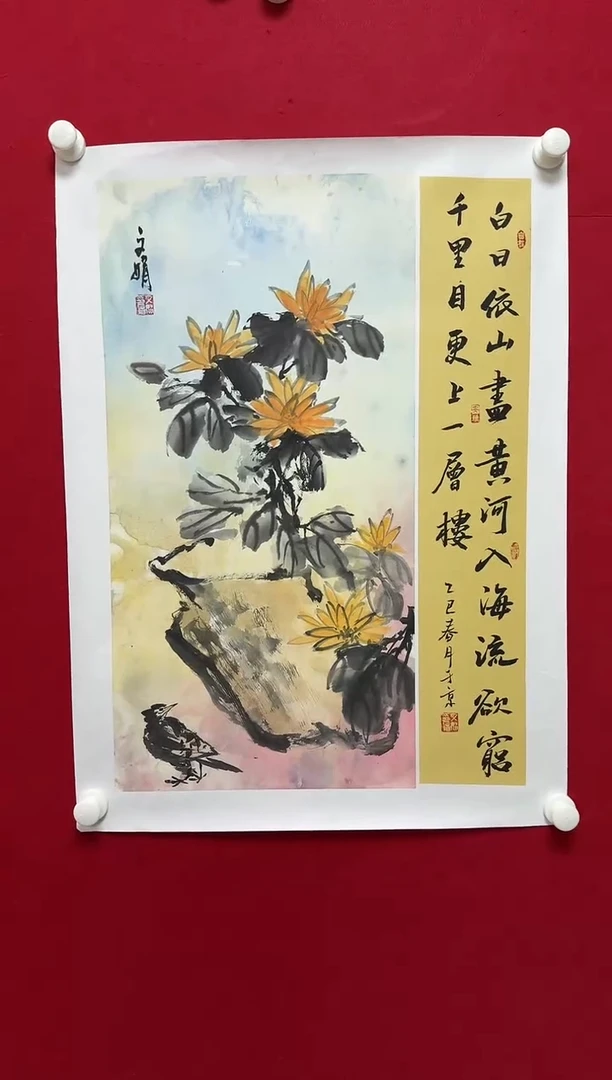 白日依山盡黃河入海流欲窮
千里目更上一層樓
乙巳春月于京
文娟